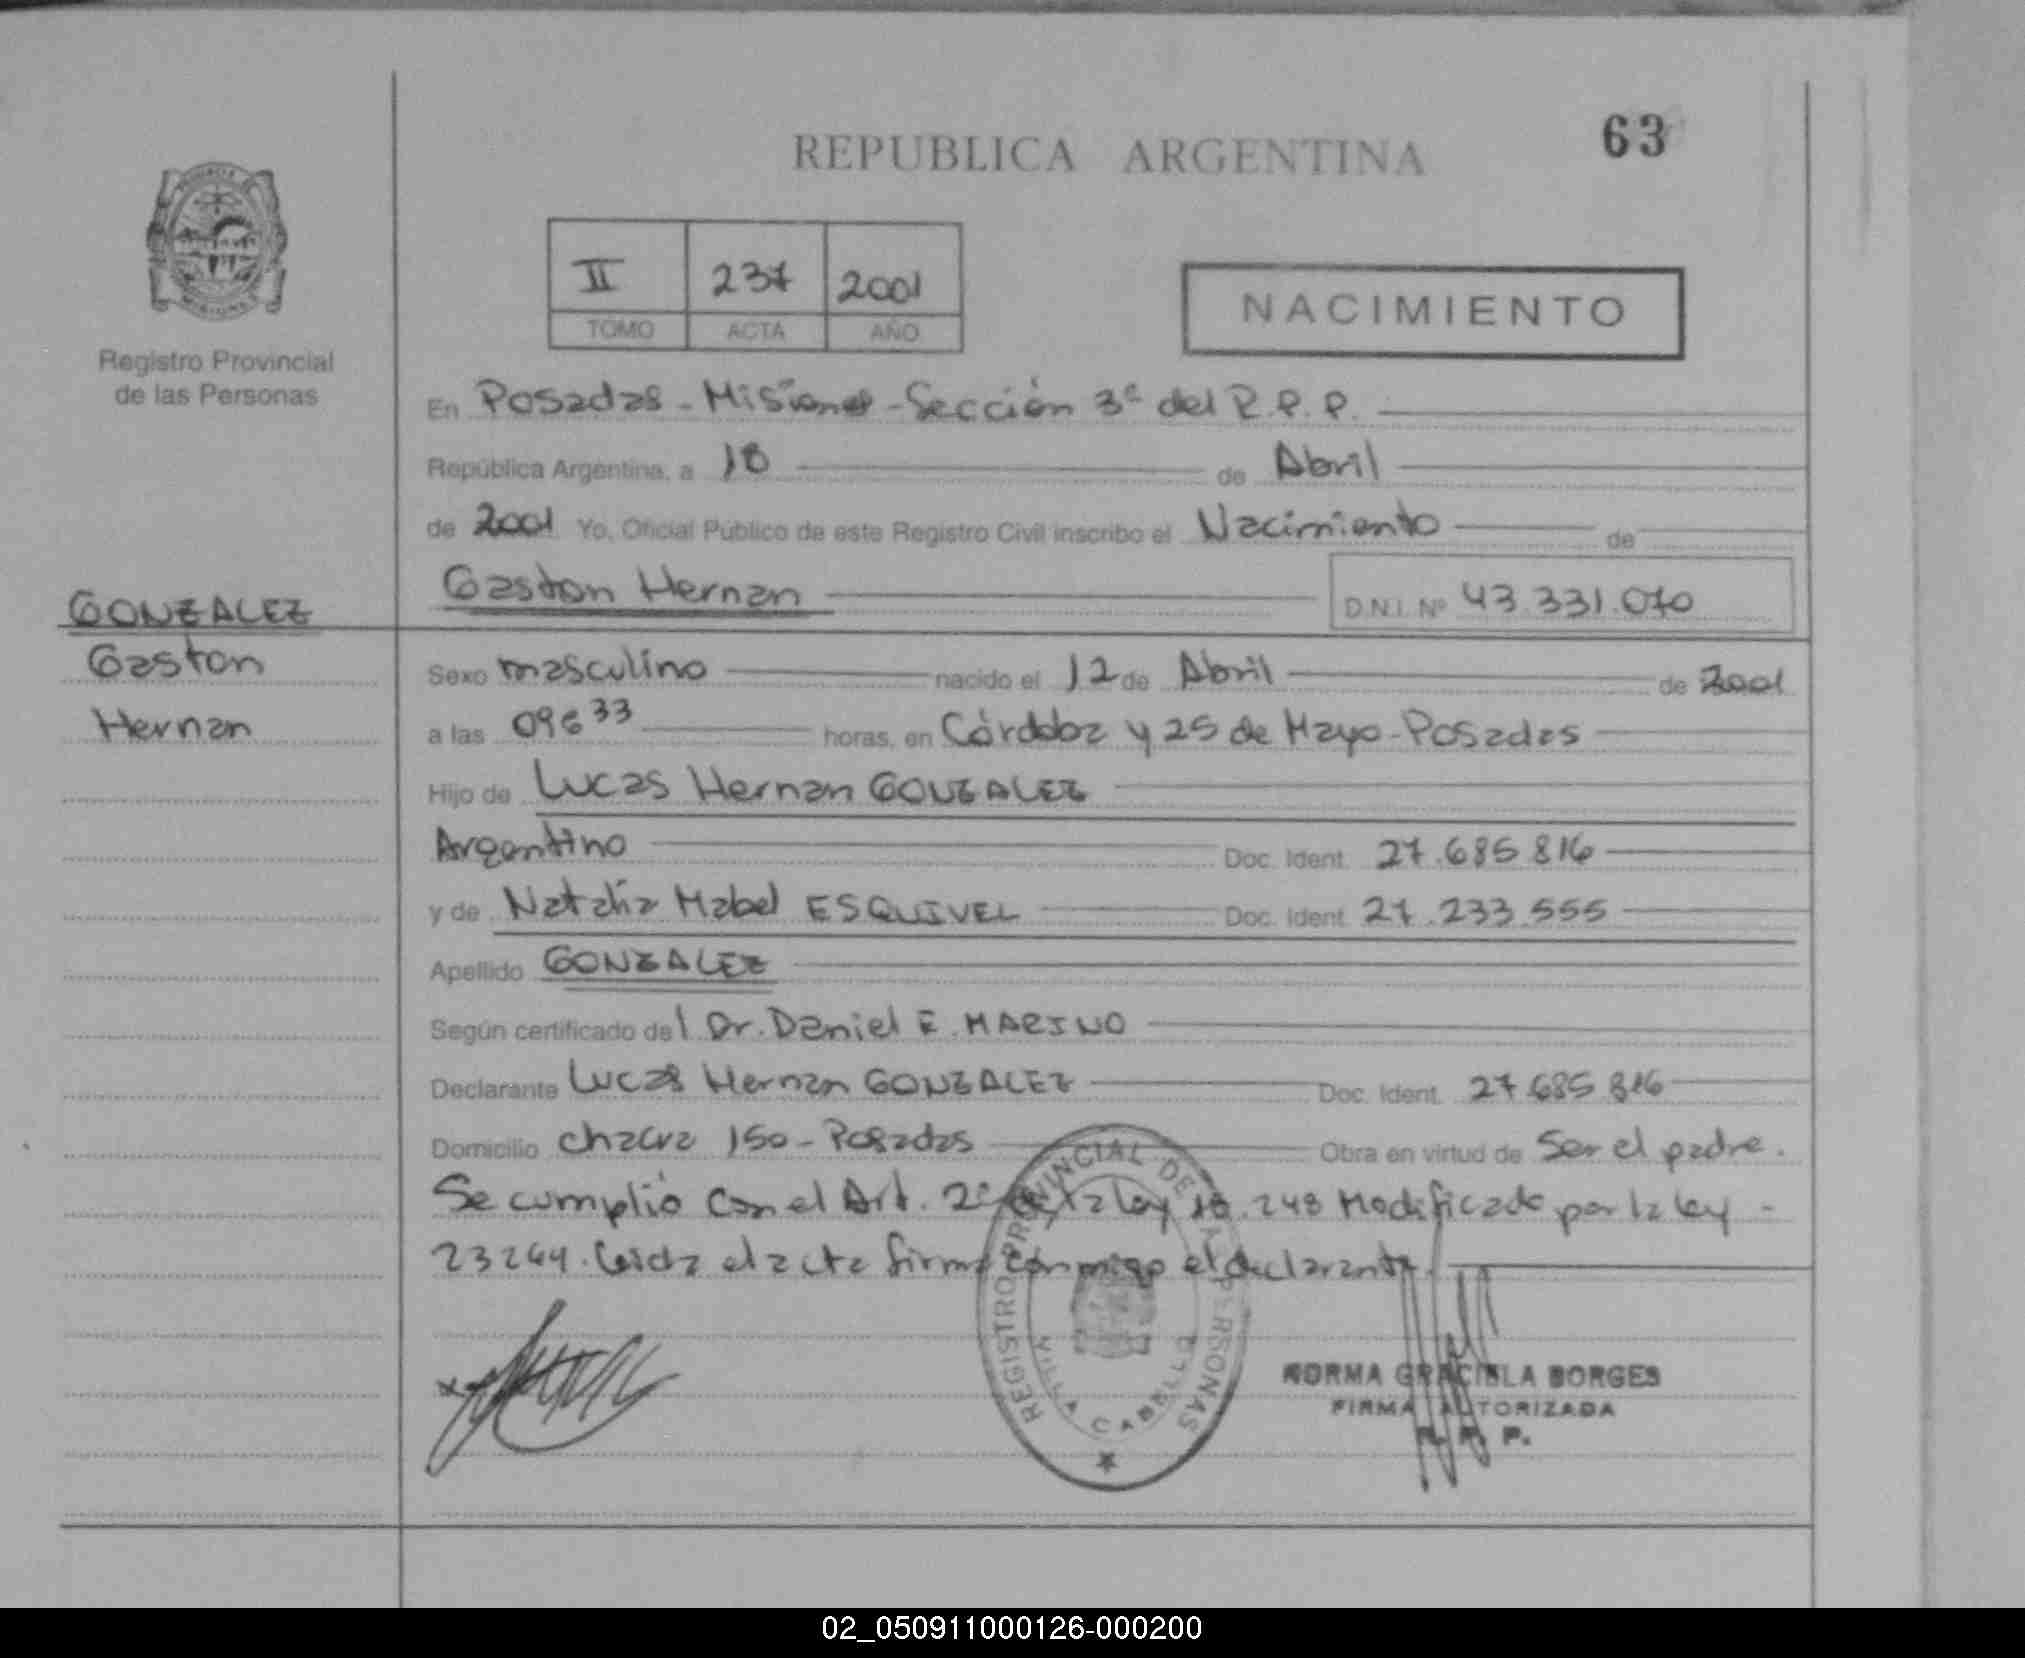 REPUBLICA ARGENTINA
63
II 237 2001
TOMO ACTA AÑO
NACIMIENTO
Registro Provincial
de las Personas
En Posadas - Misiones - Sección 3ª del R.P.P.
República Argentina, a 18 de Abril
de 2001 Yo, Oficial Público de este Registro Civil inscribo el Nacimiento de
Gaston Hernan D.N.I. Nº 43.331.070
GONZALEZ
Gaston
Hernan
Sexo masculino nacido el 12 de Abril de 2001
a las 09 33 horas, en Córdoba y 25 de Mayo - Posadas
Hijo de Lucas Hernan GONZALEZ
Argentino Doc. Ident. 27.685.816
y de Natalia Mabel ESQUIVEL Doc. Ident. 27.233.555
Apellido GONZALEZ
Según certificado del Dr. Daniel E. MARINO
Declarante Lucas Hernan GONZALEZ Doc. Ident. 27.685.816
Domicilio Chacra 150 - Posadas Obra en virtud de Ser el padre.
Se cumplió con el Art. 2º de la ley 18.248 Modificado por la ley -
23264. Leida el acta firma conmigo el declarante.
REGISTRO PROVINCIAL DE LAS PERSONAS
VILLA CABELLO
NORMA GRACIELA BORGES
FIRMA AUTORIZADA
R. P. P.
02_050911000126-000200